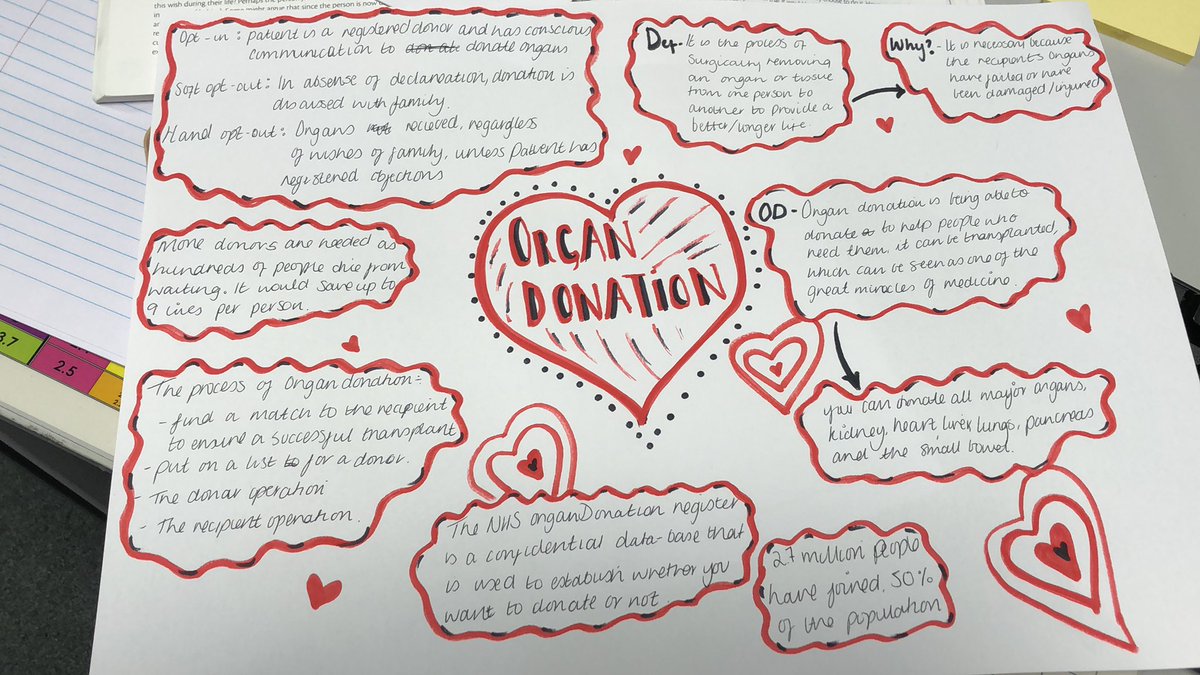 this wish during their life? Perhaps the
Opt-in: patient is a registered donor and has conscious
communication to donate organs
Soft opt-out: In absence of declaration, donation is
discussed with family.
Hard opt-out: Organs recieved, regardless
of wishes of family, unless patient has
registered objections
Def- It is the process of
surgically removing
an organ or tissue
from one person to
another to provide a
better/longer life.
Why? - It is necessary because
the recipient's organs
have failed or have
been damaged/injured
ORGAN
DONATION
OD - Organ donation is being able to
donate to help people who
need them. it can be transplanted,
which can be seen as one of the
great miracles of medicine.
More donors are needed as
hundreds of people die from
waiting. It would save up to
9 lives per person.
you can donate all major organs,
kidney, heart liver lungs, pancreas
and the small bowel.
The process of Organ donation:-
- find a match to the recipient
to ensure a successful transplant
- put on a list for a donor.
- The donar operation
- The recipient operation.
The NHS organ Donation register
is a confidential data-base that
is used to establish whether you
want to donate or not.
27 million people
have joined, 50%
of the population
3.7
2.5